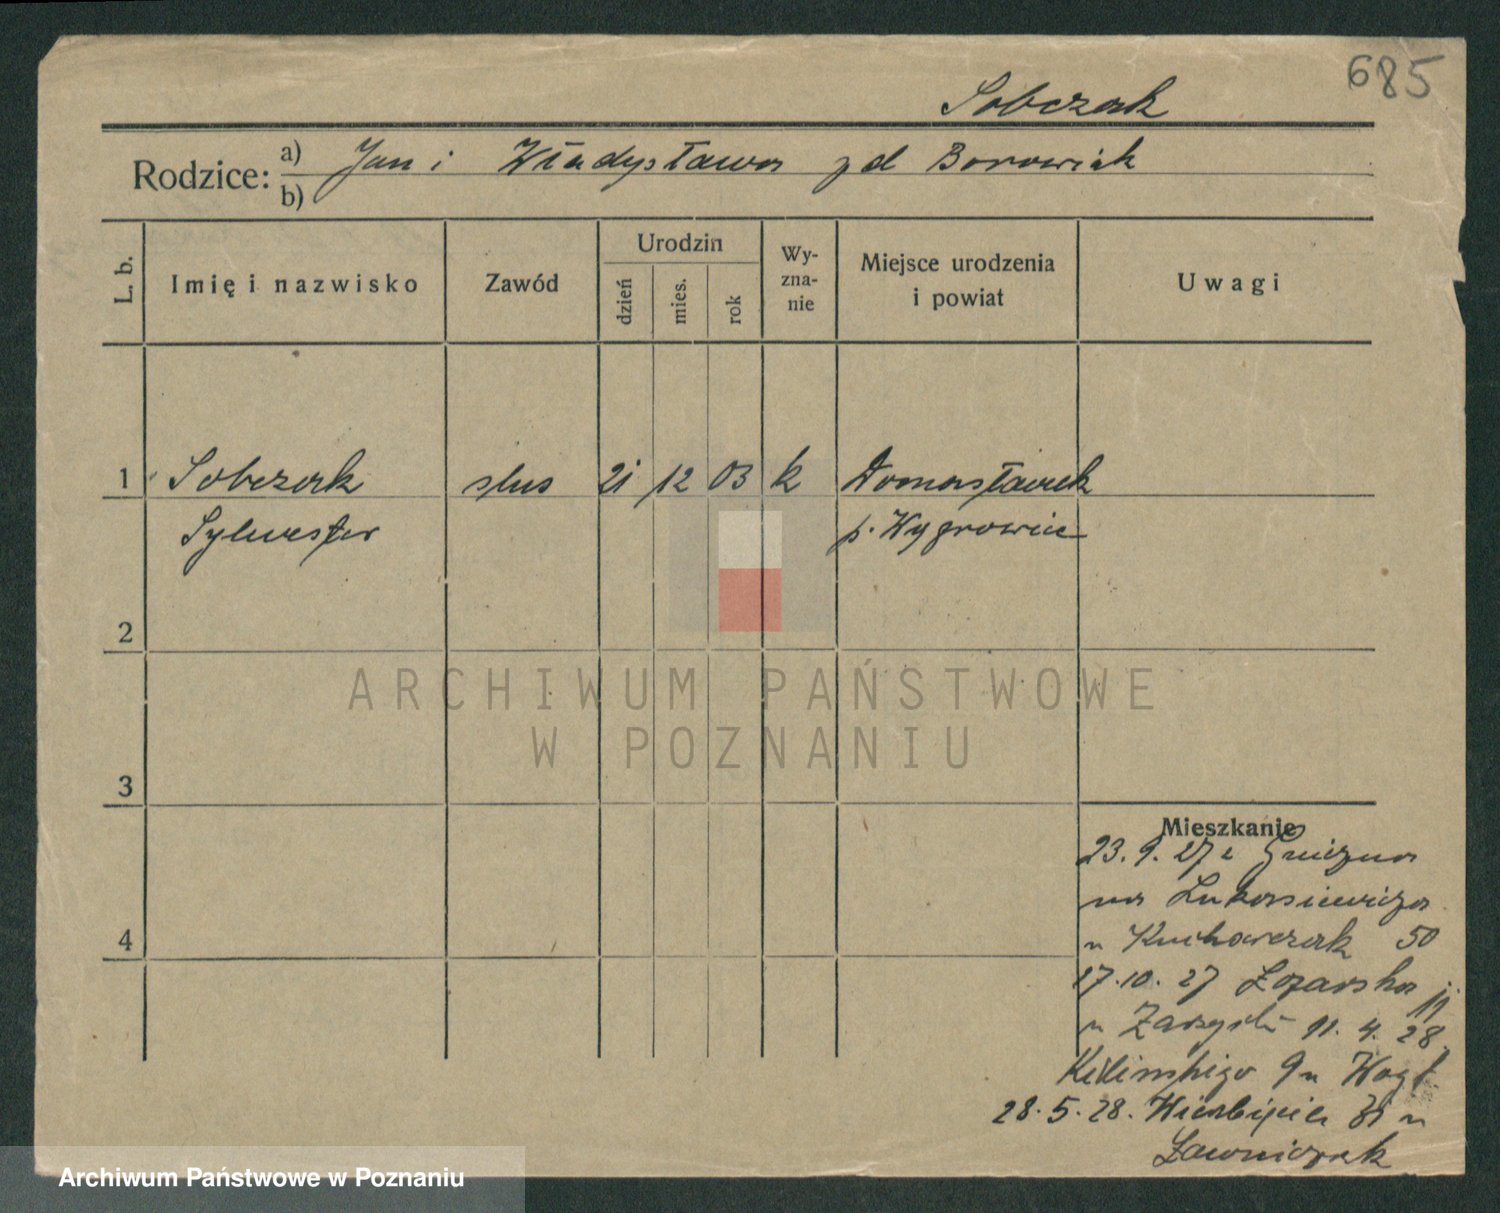 685
Sobczak
Rodzice: a) Jan i Władysława zd Borowiak
b)
L. b.
Imię i nazwisko
Zawód
Urodzin
dzień
mies.
rok
Wy-
zna-
nie
Miejsce urodzenia
i powiat
Uwagi
1 Sobczak slus 21 12 03 k Domasławek
Sylwester p. Wągrowiec
2
3
4
ARCHIWUM PAŃSTWOWE
W POZNANIU
Mieszkanie
23.9.27 z Gniezna
na Łukasiewicza
u Kucharczak 50
17.10.27 Łazarska
11
u 11.4.28
Kilinskiego 9 u Wogt
28.5.28. Wierbięcice u
Ławniczak
Archiwum Państwowe w Poznaniu